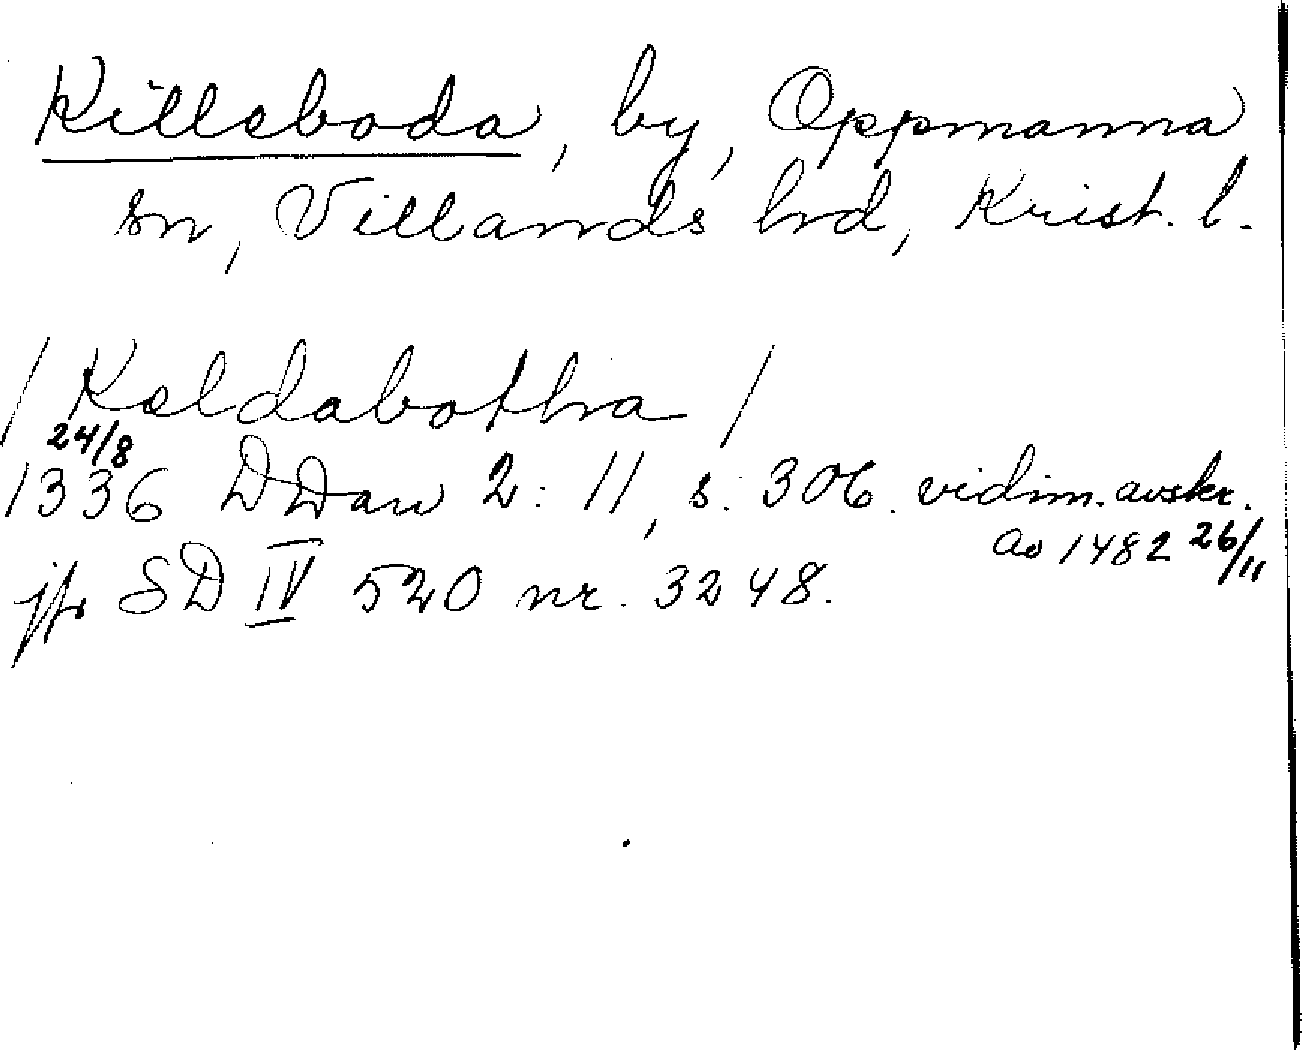 Killeboda, by, Oppmanna
sn, Villands hrd, Krist. l.
/ Keldabothra /
24/8
1336 DDan 2: 11, s. 306. vidim. avskr.
av 1482 26/11
jfr SD IV 520 nr. 3248.